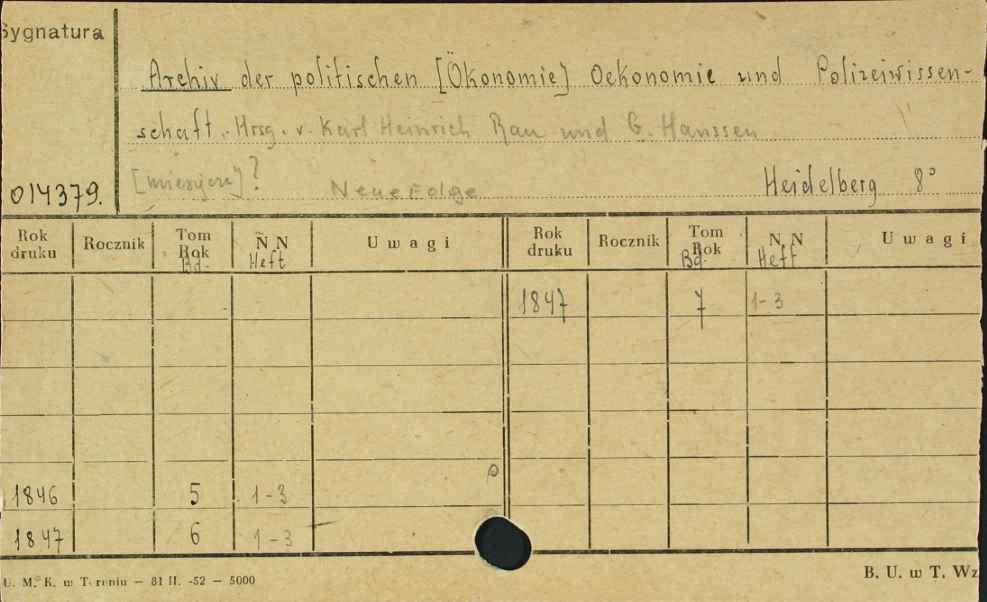 Sygnatura
Archiv der politischen [Ökonomie] Oekonomie und Polizeiwissen-
schaft. Hrsg. v. Karl Heinrich Rau und G. Hanssen
014379. ? Neue Folge Heidelberg 8°
Rok druku Rocznik Tom Rok Bd. N N Heft Uwagi Rok druku Rocznik Tom Rok Bd. N N Heft Uwagi
1847 7 1-3
1846 5 1-3
1847 6 1-3
U. M. K. w Toruniu — 81 II. -52 — 5000 B. U. w T. Wz